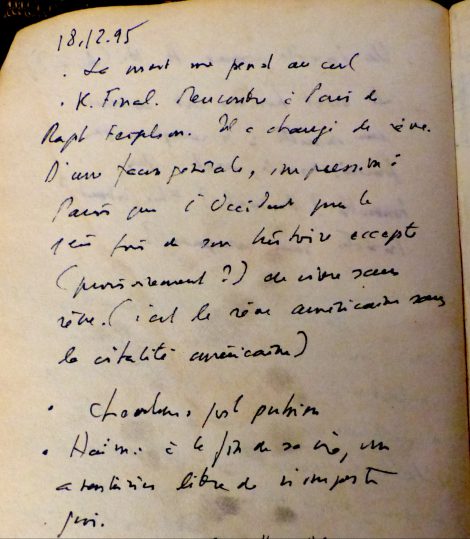 18.12.95
. La mort me pend au cul
. K. Final. Rencontre à Paris de
Raph Il a changé de rêve.
D'une façon générale, impression :
que l'Occident pour la
1ère fois de son histoire accepte
(provisoirement ?) de vivre sans
rêve. (c'est le rêve américain sans
la vitalité américaine)
.
. Haïm. à la fin de sa vie, un
libre de n'importe
qui.